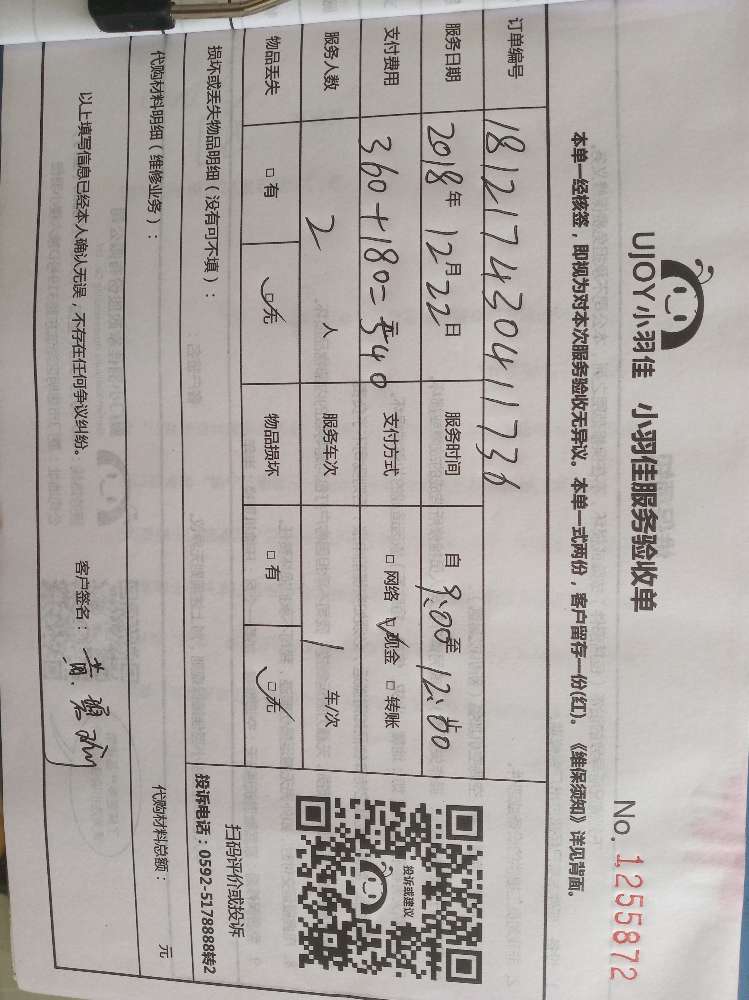 UJOY小羽佳 小羽佳服务验收单
No. 1255872
本单一经核签，即视为对本次服务验收无异议。本单一式两份，客户留存一份(红)。《维保须知》详见背面。
订单编号 181217430411736
服务日期 2018年12月22日 服务时间 自9:00至12:00止
支付费用 360+180=540元 支付方式 □网络 ☑现金 □转账
服务人数 2人 服务车次 1车/次
物品丢失 □有 ☑无 物品损坏 □有 ☑无
投诉或建议
扫码评价或投诉
投诉电话：0592-5178888转2
损坏或丢失物品明细（没有可不填）：
代购材料明细（维修业务）：
代购材料总额： 元
以上填写信息已经本人确认无误，不存在任何争议纠纷。
客户签名：